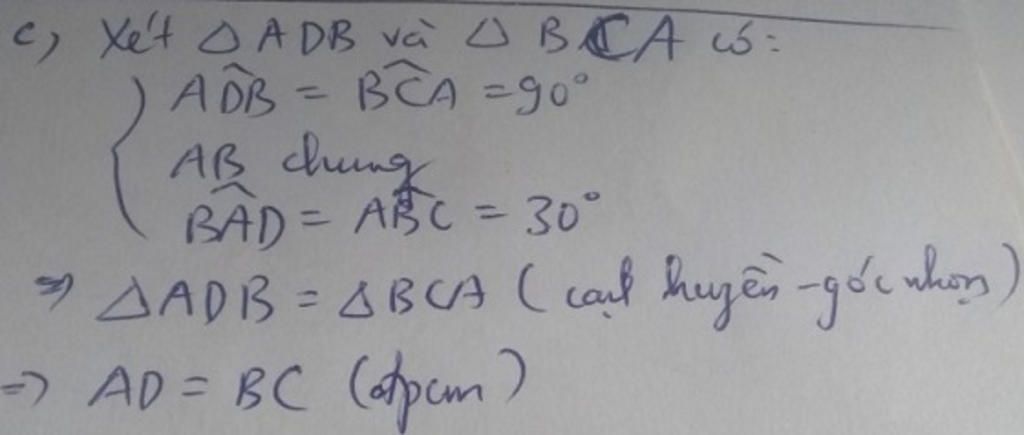 c, Xét △ADB và △BCA có:
ADB̂ = BĈA = 90°
AB chung
BÂD = AB̂C = 30°
=> △ADB = △BCA (cạnh huyền - góc nhọn)
=> AD = BC (đpcm)